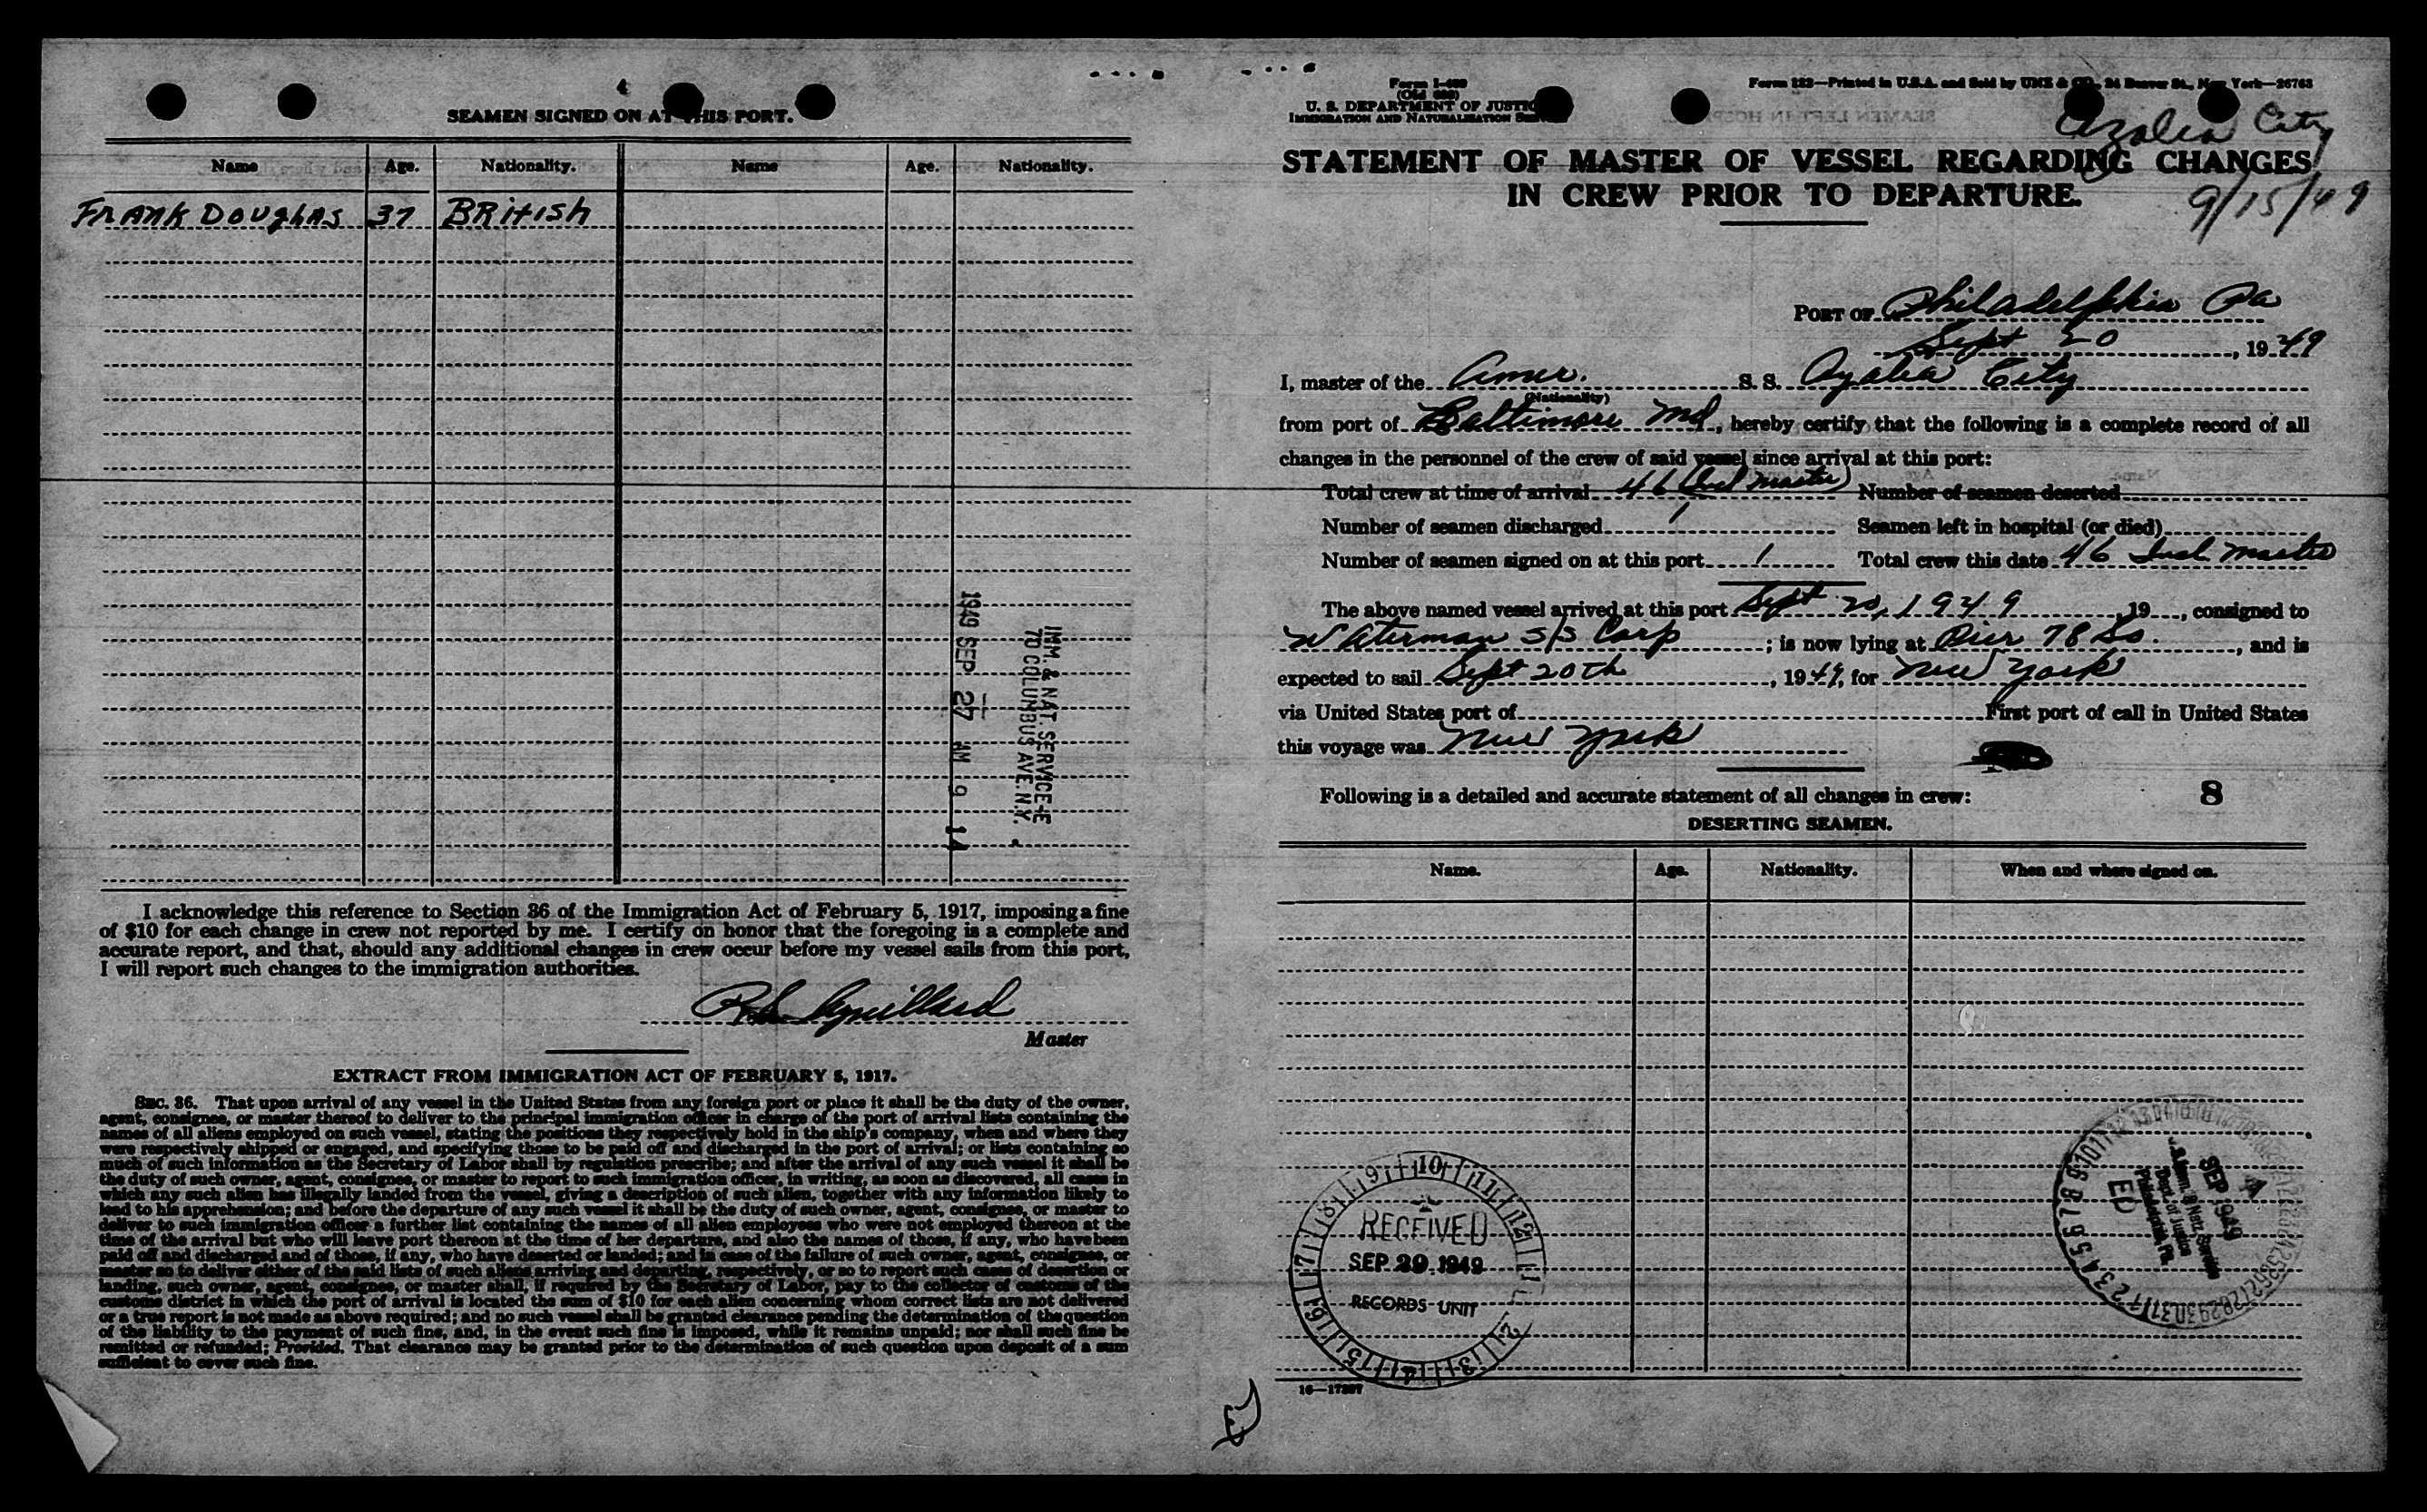 4
SEAMEN SIGNED ON AT THIS PORT.
Name Age. Nationality. Name Age. Nationality.
FRANK DOUGHLAS 37 BRITISH
IMM. & NAT. SERVICE-E
70 COLUNBUS AVE. N.Y.
1949 SEP 27 AM 9 14
I acknowledge this reference to Section 36 of the Immigration Act of February 5, 1917, imposing a fine
of $10 for each change in crew not reported by me. I certify on honor that the foregoing is a complete and
accurate report, and that, should any additional changes in crew occur before my vessel sails from this port,
I will report such changes to the immigration authorities.
Master
EXTRACT FROM IMMIGRATION ACT OF FEBRUARY 5, 1917.
SEC. 36. That upon arrival of any vessel in the United States from any foreign port or place it shall be the duty of the owner,
agent, consignee, or master thereof to deliver to the principal immigration officer in charge of the port of arrival lists containing the
names of all aliens employed on such vessel, stating the positions they respectively hold in the ship's company, when and where they
were respectively shipped or engaged, and specifying those to be paid off and discharged in the port of arrival; or lists containing so
much of such information as the Secretary of Labor shall by regulation prescribe; and after the arrival of any such vessel it shall be
the duty of such owner, agent, consignee, or master to report to such immigration officer, in writing, as soon as discovered, all cases in
which any such alien has illegally landed from the vessel, giving a description of such alien, together with any information likely to
lead to his apprehension; and before the departure of any such vessel it shall be the duty of such owner, agent, consignee, or master to
deliver to such immigration officer a further list containing the names of all alien employees who were not employed thereon at the
time of the arrival but who will leave port thereon at the time of her departure, and also the names of those, if any, who have been
paid off and discharged and of those, if any, who have deserted or landed; and in case of the failure of such owner, agent, consignee, or
master so to deliver either of the said lists of such aliens arriving and departing, respectively, or so to report such cases of desertion or
landing, such owner, agent, consignee, or master shall, if required by the Secretary of Labor, pay to the collector of customs of the
customs district in which the port of arrival is located the sum of $10 for each alien concerning whom correct lists are not delivered
or a true report is not made as above required; and no such vessel shall be granted clearance pending the determination of the question
of the liability to the payment of such fine, and, in the event such fine is imposed, while it remains unpaid; nor shall such fine be
remitted or refunded; Provided, That clearance may be granted prior to the determination of such question upon deposit of a sum
sufficient to cover such fine.
Form I-489
U. S. DEPARTMENT OF JUSTICE
IMMIGRATION AND NATURALIZATION SERVICE
Form 123—Printed in U.S.A. and Sold by UNZ & CO., 24 Beaver St., New York—26763
Azalea City
STATEMENT OF MASTER OF VESSEL REGARDING CHANGES
IN CREW PRIOR TO DEPARTURE.
9/15/49
PORT OF Philadelphia Pa
Sept 20, 1949
I, master of the Amer. S. S. Azalea City
(Nationality)
from port of Baltimore Md, hereby certify that the following is a complete record of all
changes in the personnel of the crew of said vessel since arrival at this port:
Total crew at time of arrival 46 (Incl master) Number of seamen deserted
Number of seamen discharged 1 Seamen left in hospital (or died)
Number of seamen signed on at this port 1 Total crew this date 46 Incl master
The above named vessel arrived at this port Sept 20, 1949, 19, consigned to
Waterman S/S Corp; is now lying at Pier 78 So., and is
expected to sail Sept 20th, 1949, for New York
via United States port of First port of call in United States
this voyage was New York
Following is a detailed and accurate statement of all changes in crew: 8
DESERTING SEAMEN.
Name. Age. Nationality. When and where signed on.
RECEIVED
SEP 29 1949
RECORDS UNIT
SEP 1949
Dept. of Justice
Philadelphia, Pa.